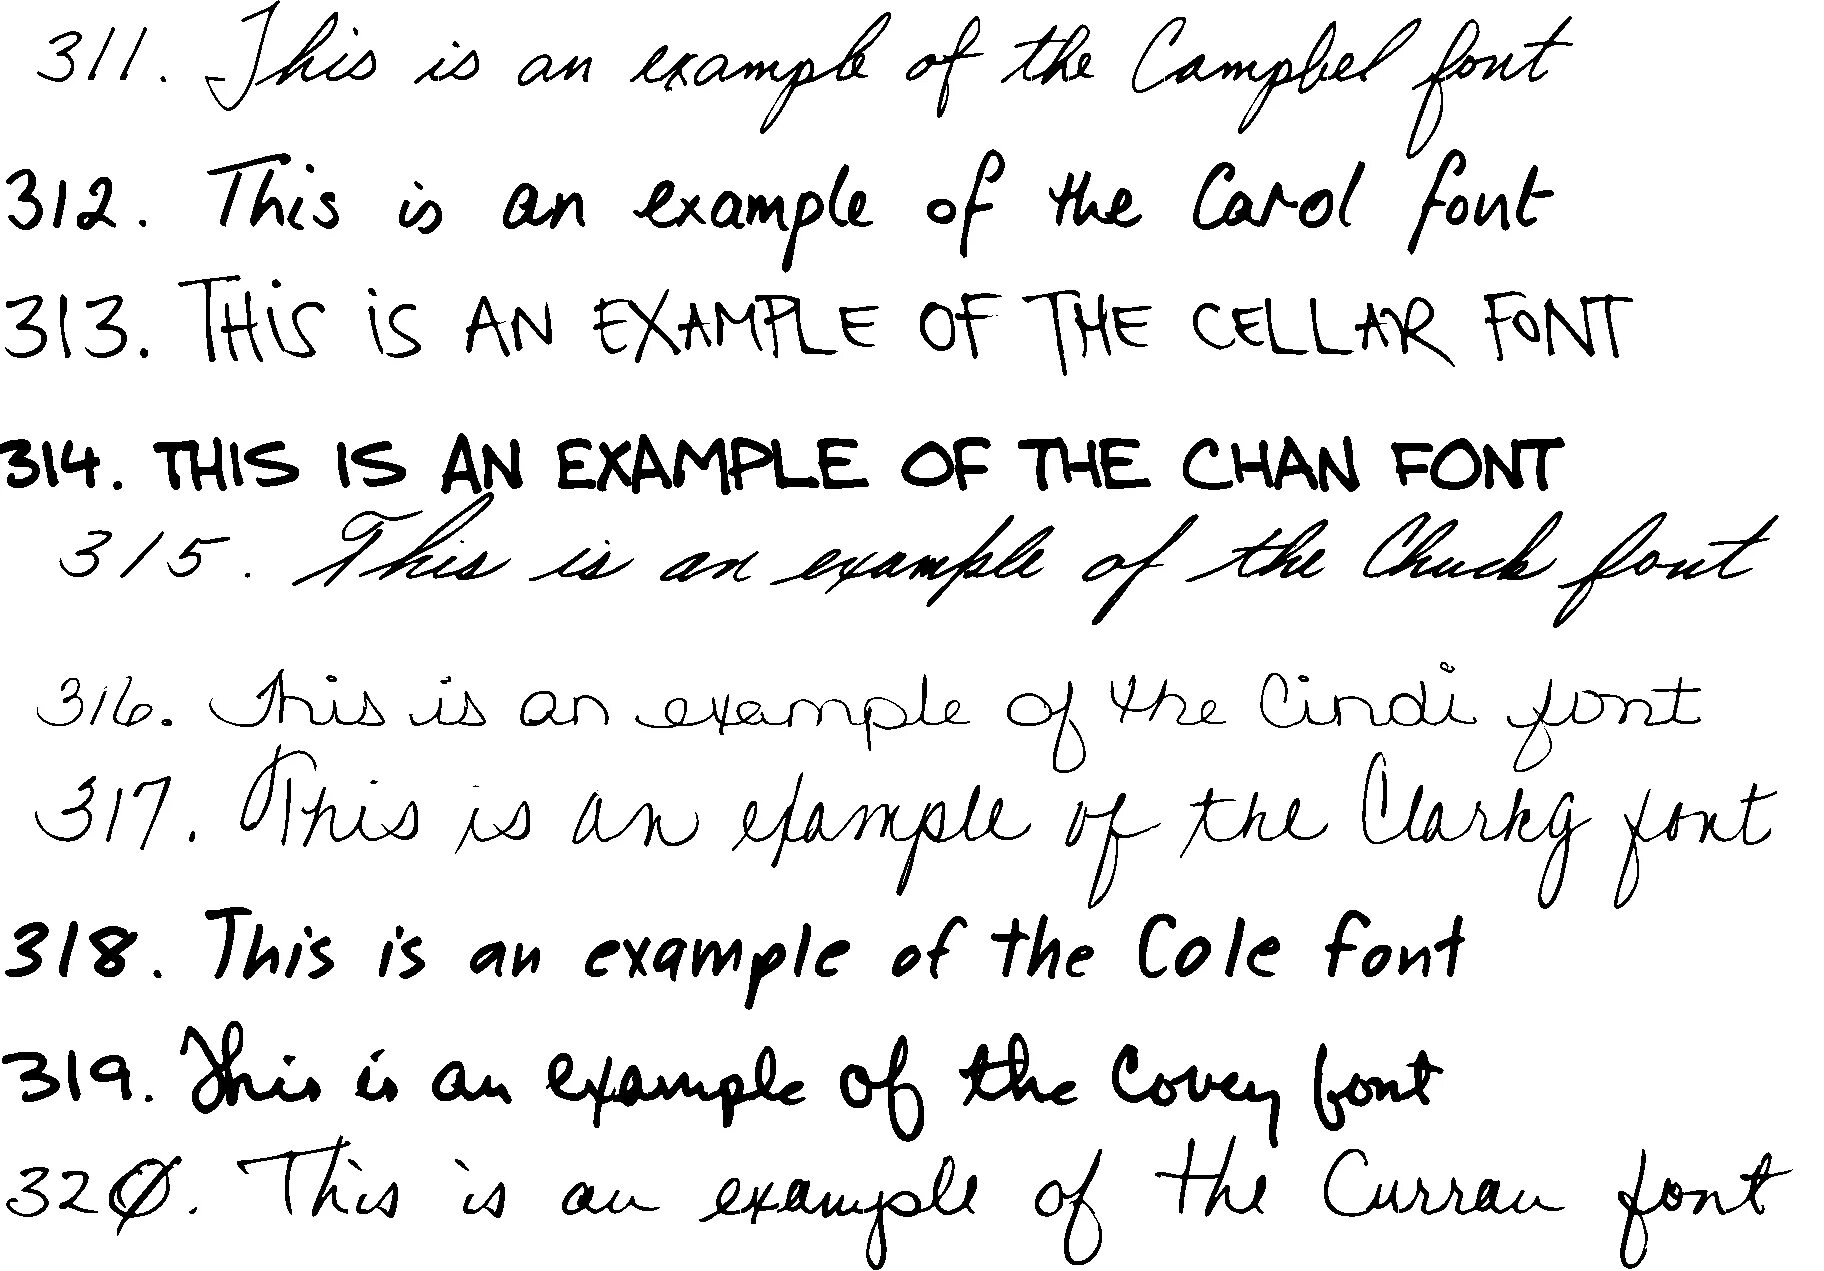 311. This is an example of the Campbel font
312. This is an example of the Carol font
313. THiS iS AN EXAMPLE OF THE CELLAR FONT
314. THIS IS AN EXAMPLE OF THE CHAN FONT
315. This is an example of the Chuck font
316. This is an example of the Cindi font
317. This is an example of the Clarkg font
318. This is an example of the Cole font
319. This is an example of the Covey font
320. This is an example of the Curran font